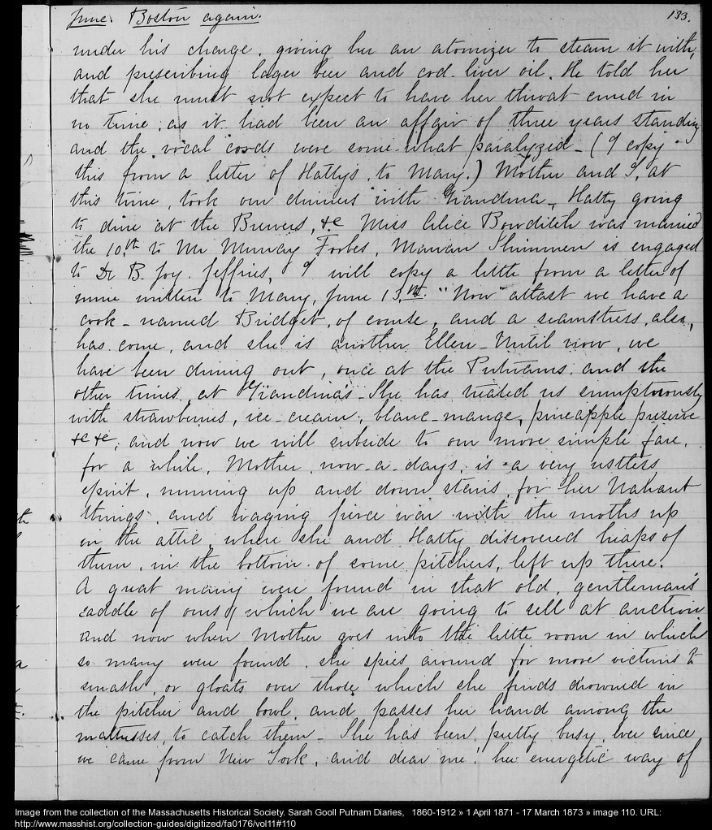 June. Boston again. 133.
under his charge, giving her an atomizer to steam it with,
and prescribing lager beer and cod-liver oil. He told her
that she must not expect to have her throat cured in
no time, as it had been an affair of three years standing
and the vocal cords were some-what paralyzed - (I copy
this from a letter of Hattys to Mary.) Mother and I, at
this time, took our dinners with Grandma, Hatty going
to dine at the Brewers, &c Miss Alice Bowditch was married
the 10th to Mr Murray Forbes, Marian Shimmin is engaged
to Dr B. Joy Jeffries, I will copy a little from a letter of
mine written to Mary, June 13th. "Now atlast we have a
cook - named Bridget, of course, and a seamstress, also,
has come, and she is another Ellen - Until now, we
have been dining out, once at the Putnams, and the
other times, at Grandma's - She has treated us sumptuously
with strawberries, ice-cream, blanc-mange, pineapple preserve
&c &c, and now we will subside to our more simple fare,
for a while. Mother, now-a-days, is a very restless
spirit, running up and down stairs, for her Nahant
things, and waging fierce war with the moths up
in the attic, where she and Hatty discovered heaps of
them, in the bottom of some pitchers, left up there.
A great many were found in that old, gentleman's
saddle of ours, which we are going to sell at auction
and now when Mother goes into the little room in which
so many were found, she spies around for more victims to
smash, or gloats over those which she finds drowned in
the pitcher and bowl, and passes her hand among the
mattresses, to catch them - She has been, pretty busy, ever since
we came from New York, and dear me, her energetic way of
Image from the collection of the Massachusetts Historical Society. Sarah Gooll Putnam Diaries, 1860-1912 » 1 April 1871 - 17 March 1873 » image 110. URL:
http://www.masshist.org/collection-guides/digitized/fa0176/vol11#110